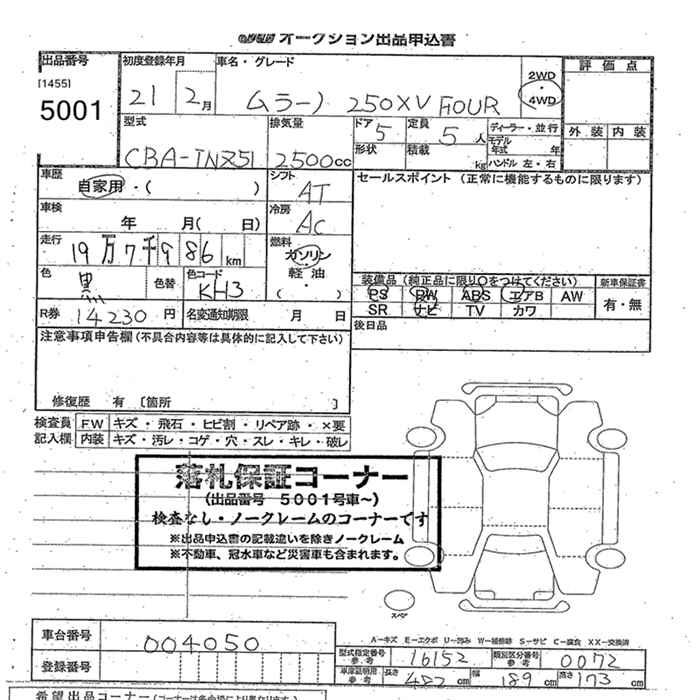 オークション出品申込書
出品番号 初度登録年月 車名・グレード 評価点
[1455] 5001
21 2月 ムラーノ 250XV FOUR 2WD・4WD
型式 排気量 ドア 5 定員 5人 ディーラー・並行 外装 内装
CBA-TNZ51 2500cc 形状 積載 kg モデル年式 年 ハンドル 左・右
車歴 自家用・( ) シフト AT セールスポイント (正常に機能するものに限ります)
車検 年 月( 日) 冷房 AC
走行 19万7千986km 燃料 ガソリン 軽油 ( ・ )
色 黒 色替 色コード KH3 装備品 (純正品に限り○をつけてください) 新車保証書
PS PW ABS エアB AW 有・無
SR ナビ TV カワ
R券 14230円 名変通知期限 月 日 後日品
注意事項申告欄 (不具合内容等は具体的に記入して下さい)
修復歴 有 [箇所 ]
検査員 FW キズ・飛石・ヒビ割・リペア跡・×要
記入欄 内装 キズ・汚レ・コゲ・穴・スレ・キレ・破レ
落札保証コーナー
(出品番号 5001号車~)
検査なし・ノークレームのコーナーです
※出品申込書の記載違いを除きノークレーム
※不動車、冠水車など災害車も含まれます。
スペア
A-キズ E-エクボ U-凹み W-補修跡 S-サビ C-腐食 XX-交換済
車台番号 004050
型式指定番号 参考 16152 類別区分番号 参考 0072
登録番号
車庫証明用 参考 長さ 482cm 幅 189cm 高さ 173cm
希望出品コーナー